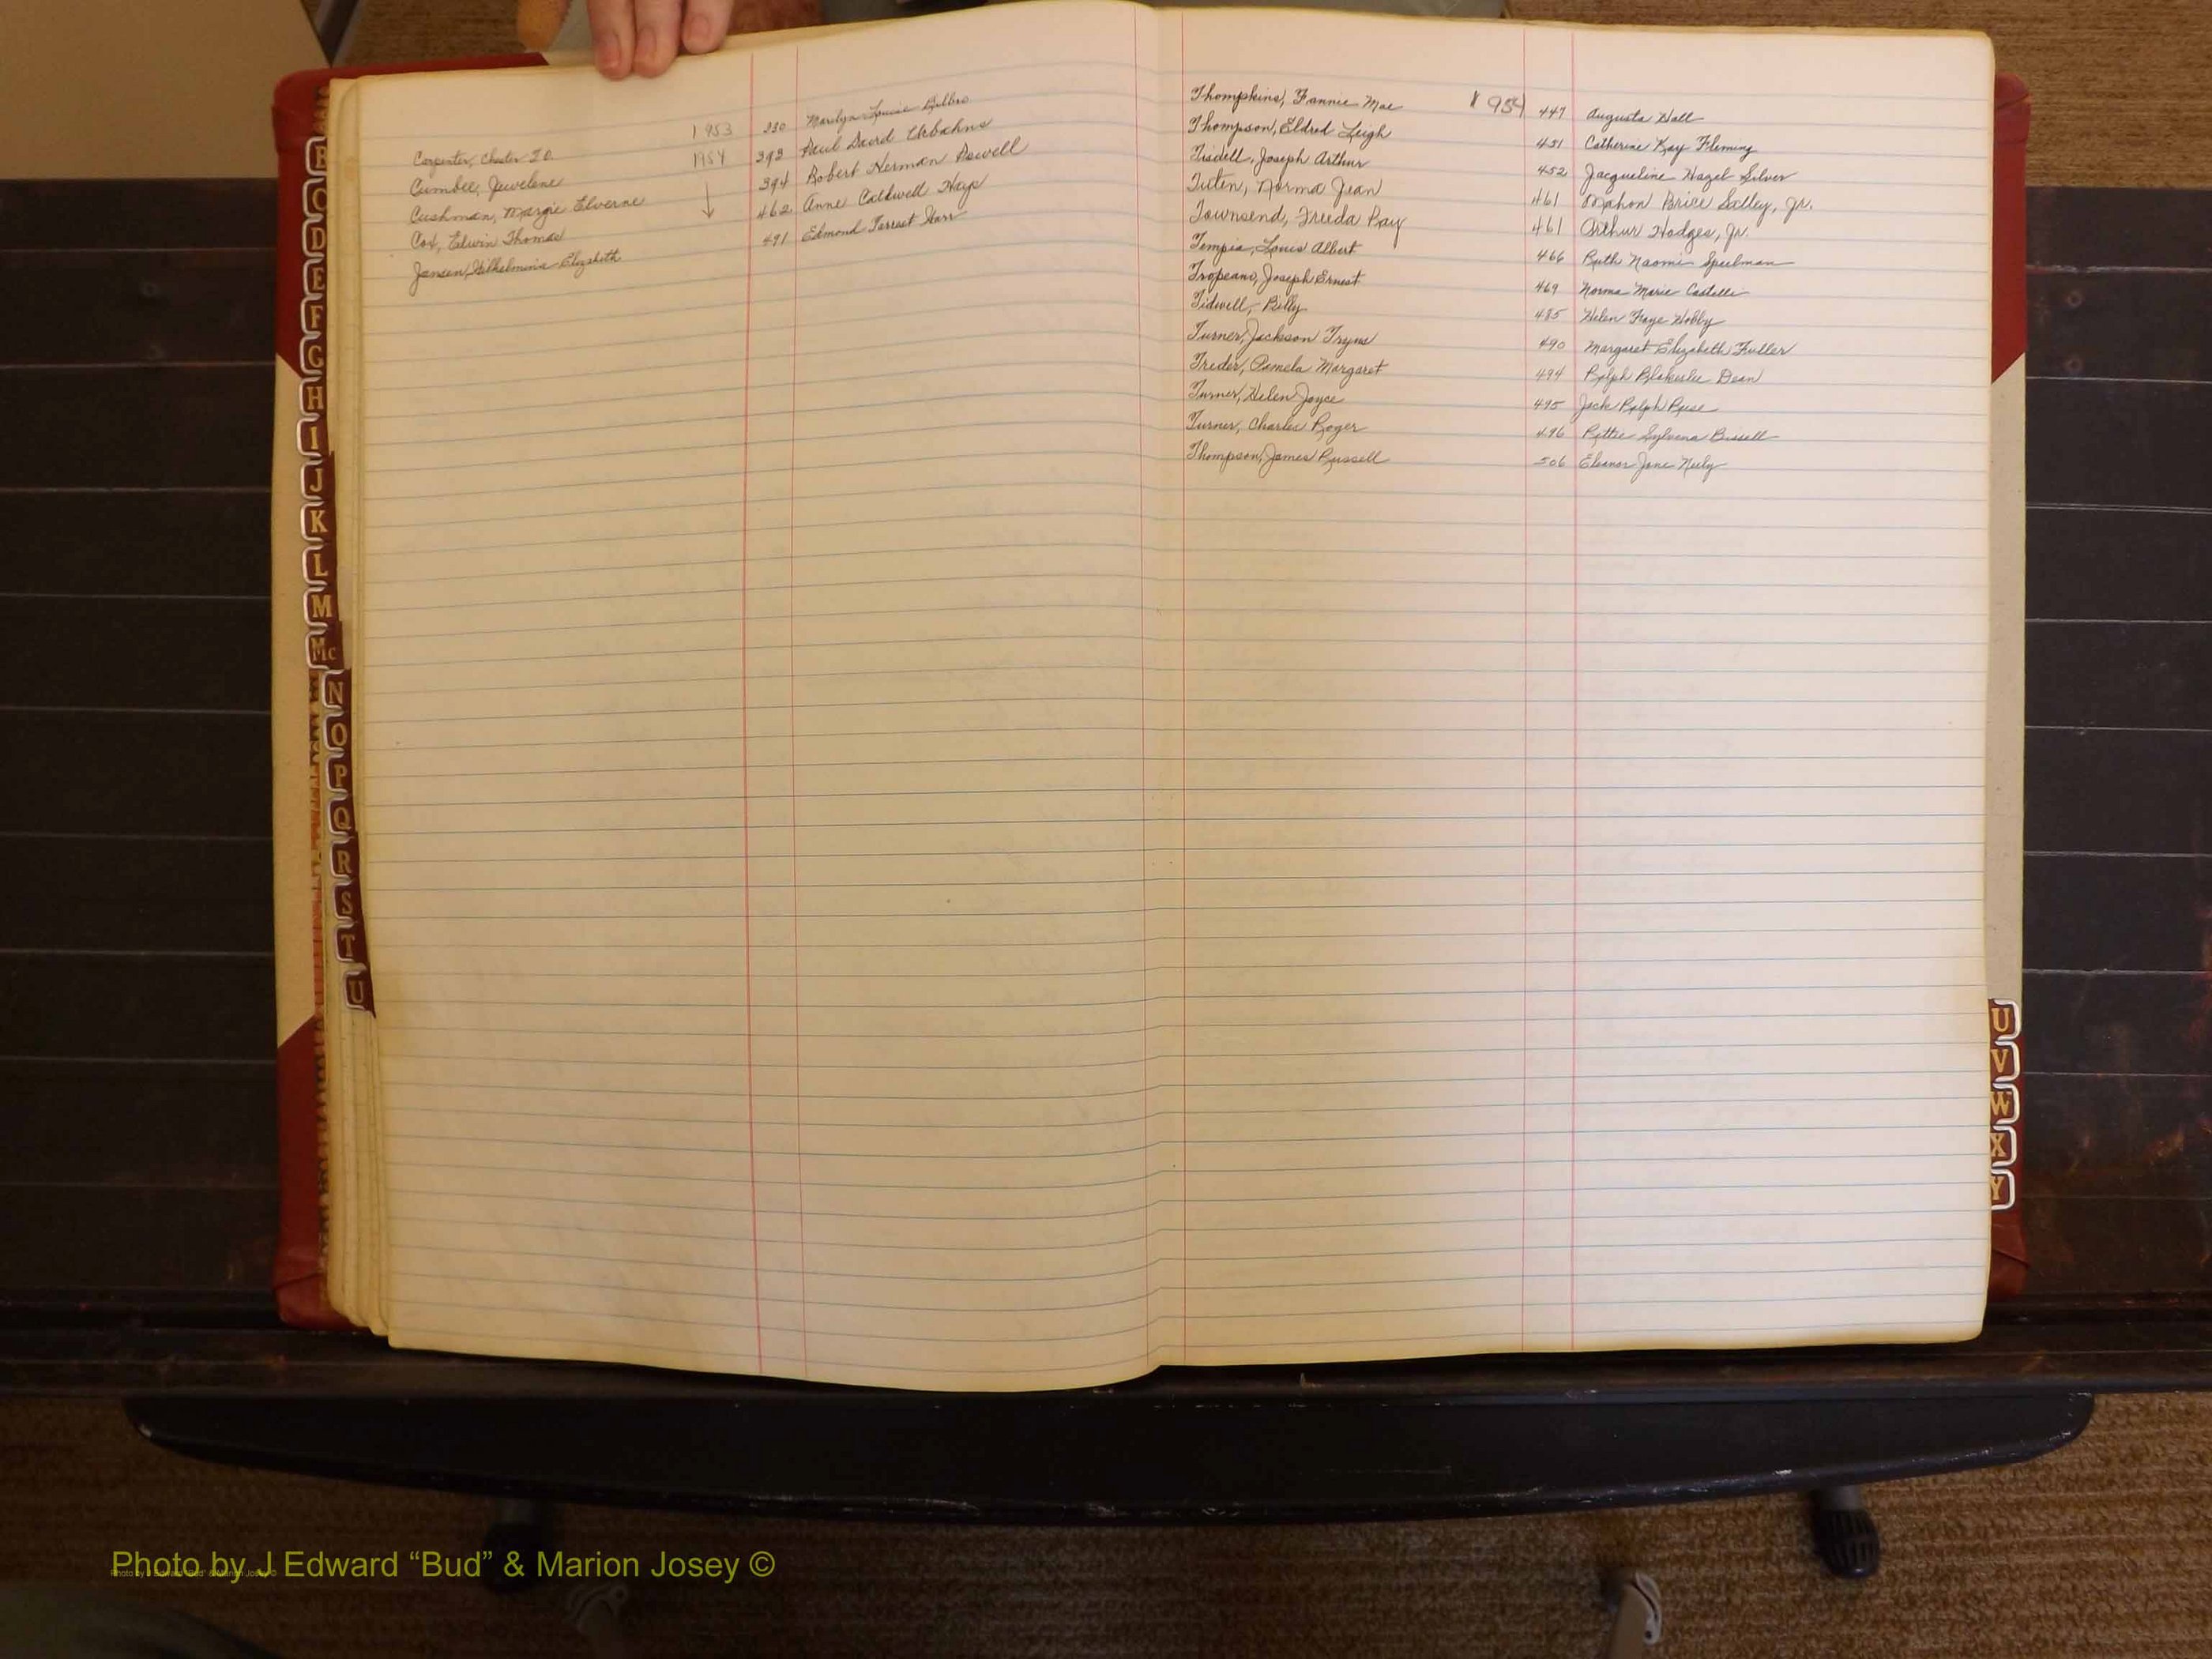 Carpenter, Chester J.O. 1953 230 Marilyn Louise
Cumbee, Juvelene 1954 393 Paul David Urbahns
Cushman, Margie Elverne 394 Robert Herman Powell
Cox, Edwin Thomas 462 Anne Caldwell Hays
Jansen, Wilhelmina Elizabeth 491 Edmond Forrest Starr
Thompkins, Fannie Mae 1954 447 Augusta Hall
Thompson, Eldred Leigh 451 Catherine Kay Fleming
Tisdell, Joseph Arthur 452 Jacqueline Hazel Silver
Tuten, Norma Jean 461 Mahon Brice Salley, Jr.
Townsend, Freeda Ray 461 Arthur Hodges, Jr.
Tempia, Louis Albert 466 Ruth Naomi Speelman
Tropeano, Joseph Ernest 469 Norma Marie Castelli
Tidwell, Billy 485 Helen Faye Hobby
Turner, Jackson 490 Margaret Elizabeth Fuller
Treder, Pamela Margaret 494 Ralph Blakeslee Dean
Turner, Helen Joyce 495 Jack Ralph
Turner, Charles Roger 496 Sylvena Bissell
Thompson, James Russell 506 Eleanor Jane Neely
B
C
D
E
F
G
H
I
J
K
L
M
Mc
N
O
P
Q
R
S
T
U
U
V
W
X
Y
Photo by J Edward “Bud” & Marion Josey ©
Photo by J Edward “Bud” & Marion Josey ©